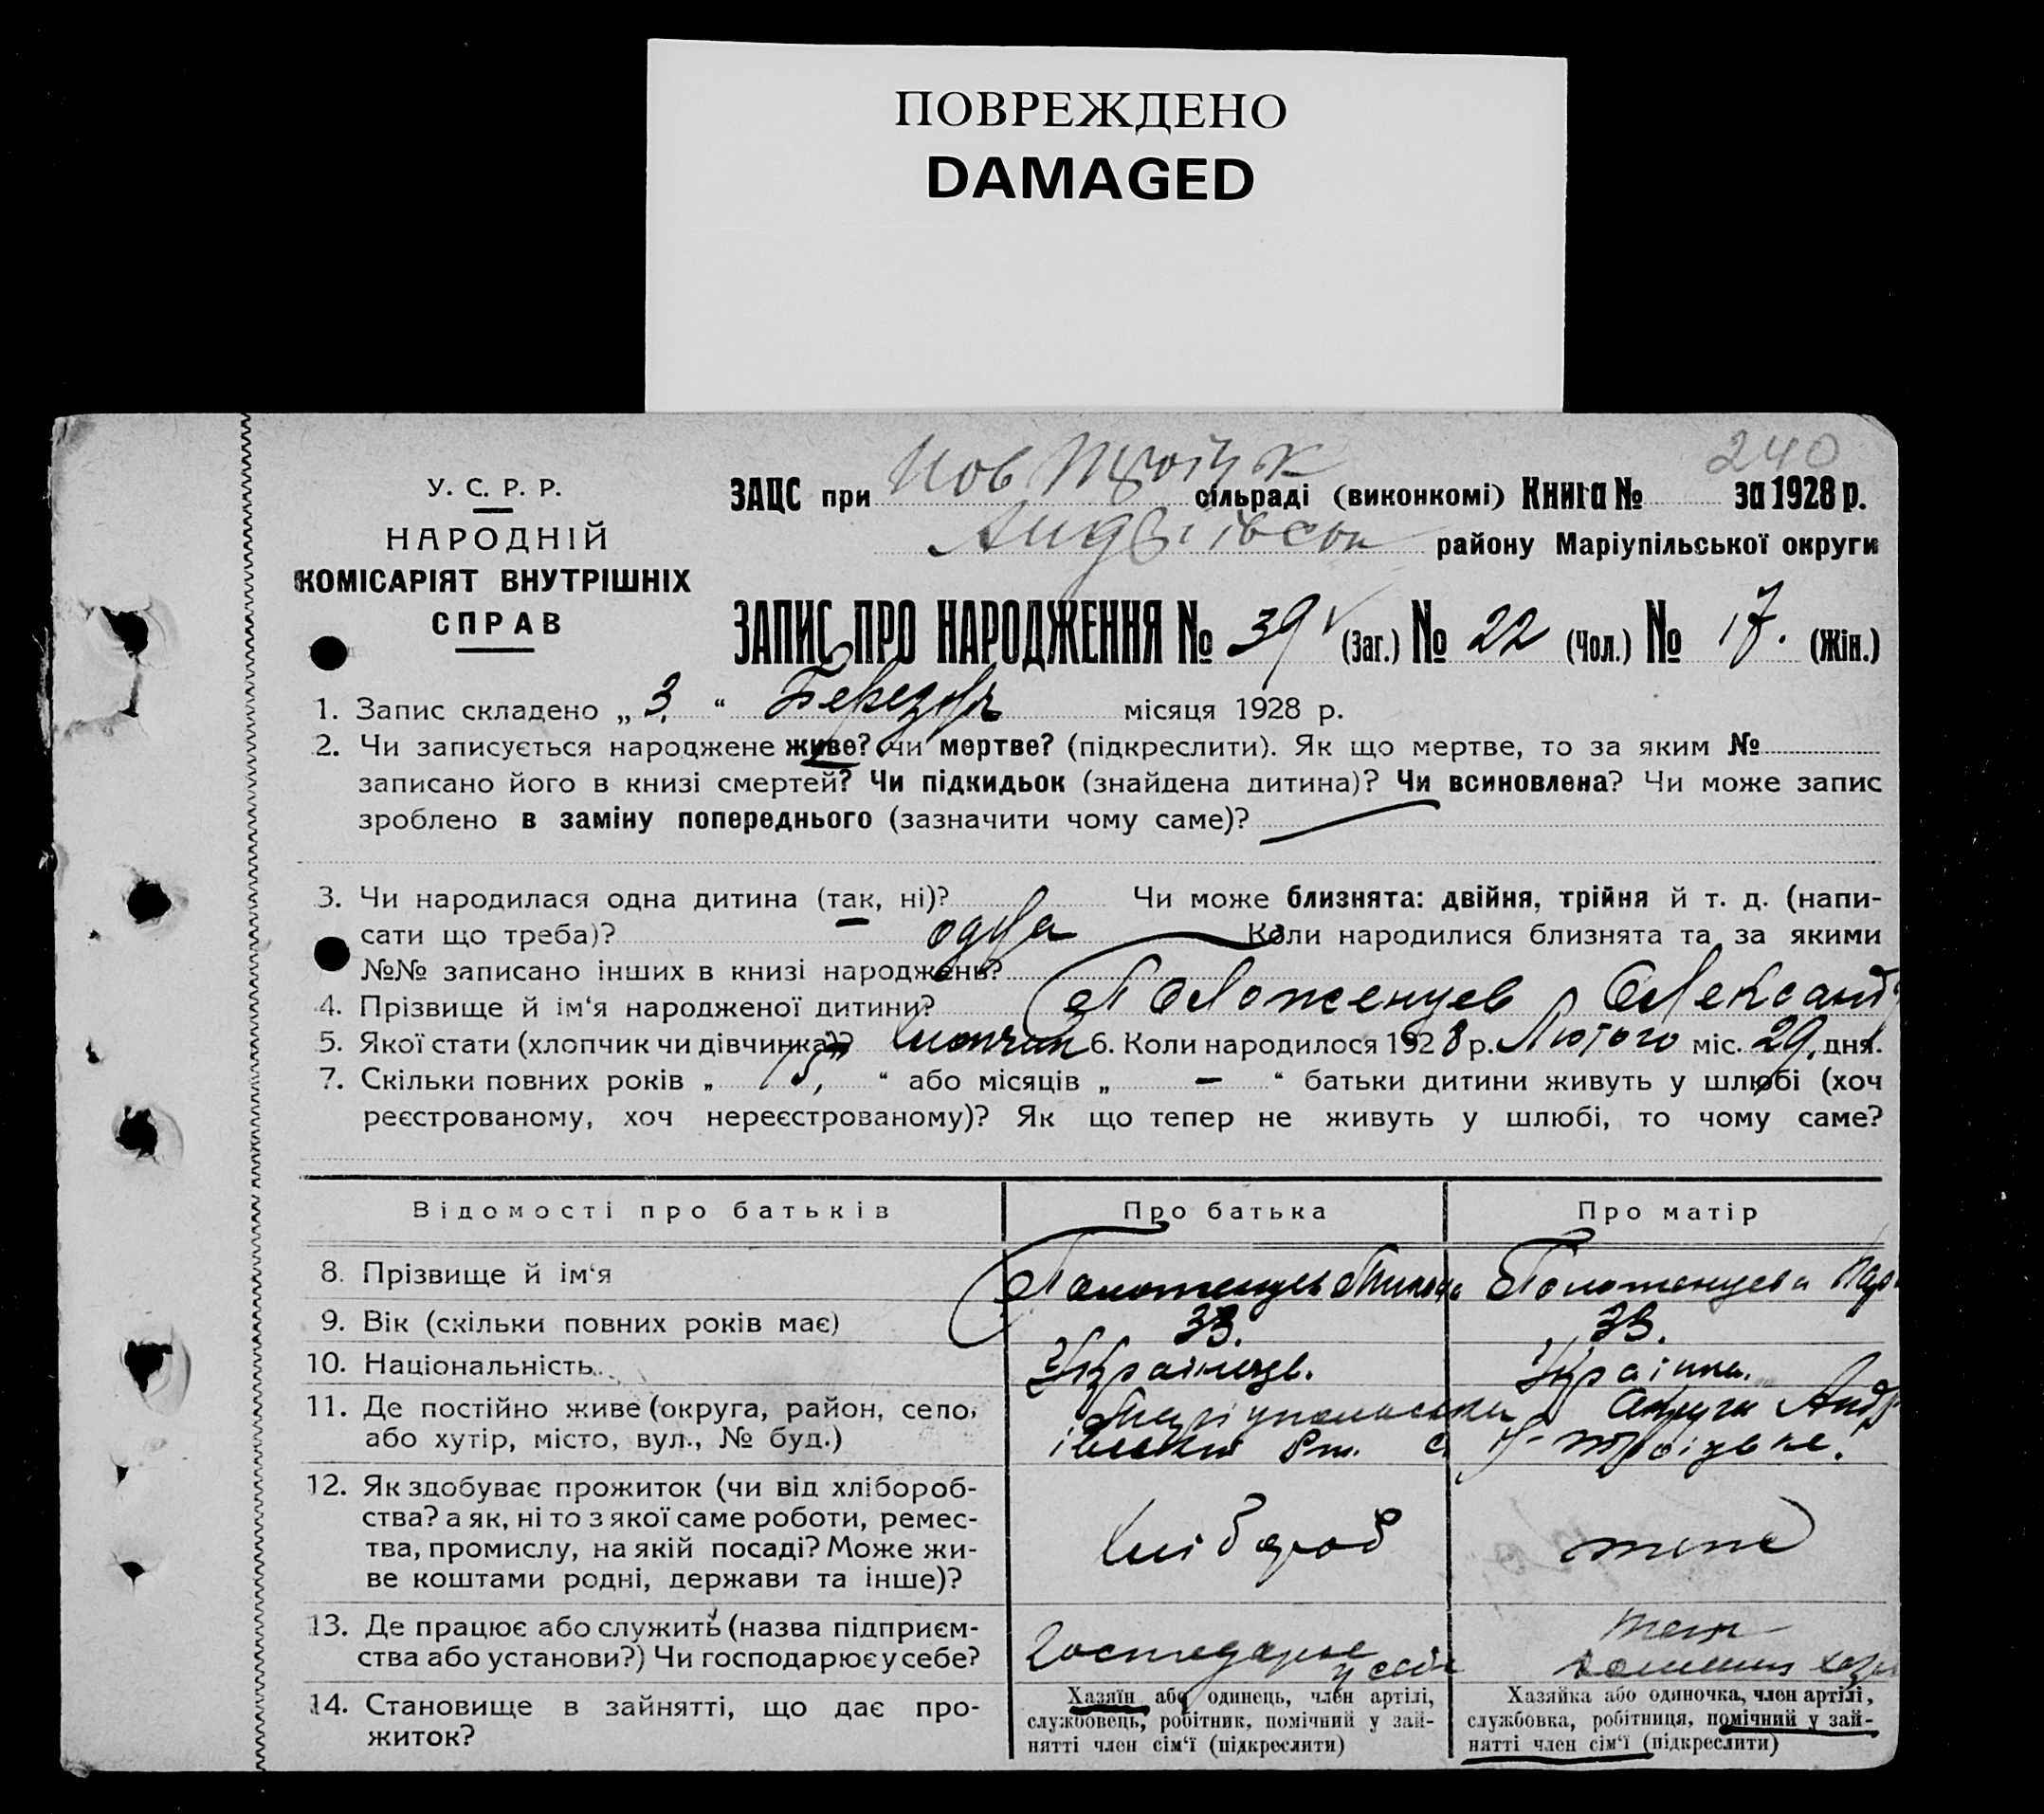 ПОВРЕЖДЕНО
DAMAGED
240
У. С. Р. Р.
НАРОДНІЙ
КОМІСАРІЯТ ВНУТРІШНІХ
СПРАВ
ЗАЦС при Нов Троїцк сільраді (виконкомі) Книга № за 1928 р.
Андріївськ району Маріупільської округи
ЗАПИС ПРО НАРОДЖЕННЯ № 39 (Заг.) № 22 (Чол.) № 17. (Жін.)
1. Запис складено „ 3 “ Березня місяця 1928 р.
2. Чи записується народжене живе? чи мертве? (підкреслити). Як що мертве, то за яким №
записано його в книзі смертей? Чи підкидьок (знайдена дитина)? Чи всиновлена? Чи може запис
зроблено в заміну попереднього (зазначити чому саме)?
3. Чи народилася одна дитина (так, ні)? Чи може близнята: двійня, трійня й т. д. (напи-
сати що треба)? одна Коли народилися близнята та за якими
№№ записано інших в книзі народжень?
4. Прізвище й ім‘я народженої дитини? Положенцев Олександ
5. Якої стати (хлопчик чи дівчинка)? хлопчик 6. Коли народилося 1928 р. Лютого міс. 29, дня.
7. Скільки повних років „ 15, “ або місяців „ — “ батьки дитини живуть у шлюбі (хоч
реєстрованому, хоч нереєстрованому)? Як що тепер не живуть у шлюбі, то чому саме?
Відомості про батьків Про батька Про матір
8. Прізвище й ім‘я Положенцев Положенцева
9. Вік (скільки повних років має) 33. 33.
10. Національність Українець. Українка.
11. Де постійно живе (округа, район, село, Маріупольська Округи Андр
або хутір, місто, вул., № буд.) івський с. Н-Троїцьке.
12. Як здобуває прожиток (чи від хлібороб-
ства? а як, ні то з якої саме роботи, ремес-
тва, промислу, на якій посаді? Може жи-
ве коштами родні, держави та інше)? хлібороб
13. Де працює або служить (назва підприєм-
ства або установи?) Чи господарює у себе? Господарює у себе
14. Становище в зайнятті, що дає про-
житок?
Хазяїн або одинець, член артілі,
службовець, робітник, помічний у зай-
нятті член сім‘ї (підкреслити)
Хазяйка або одиночка, член артілі,
службовка, робітниця, помічний у зай-
нятті член сім‘ї (підкреслити)